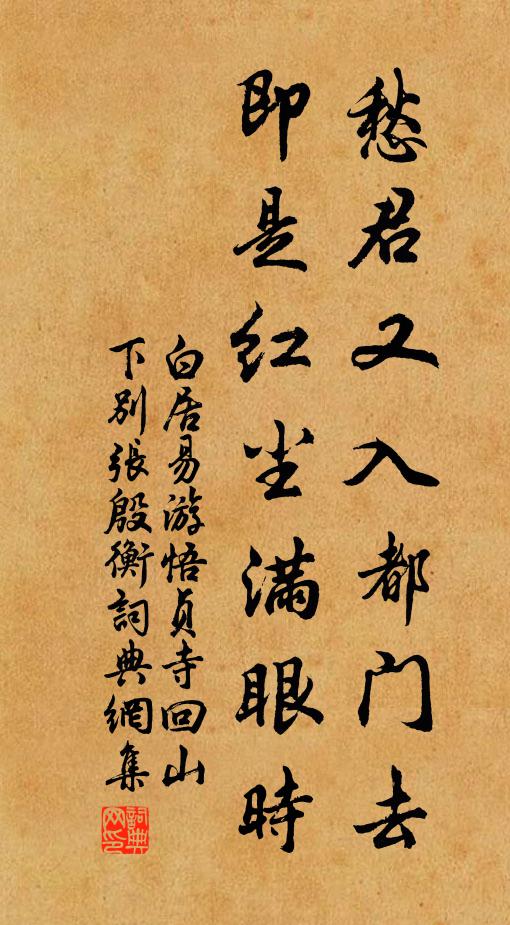 愁君又入都门去
即是红尘满眼時
白居易游悟貞寺回山
下别張殷衡詞典網集
詞典网印